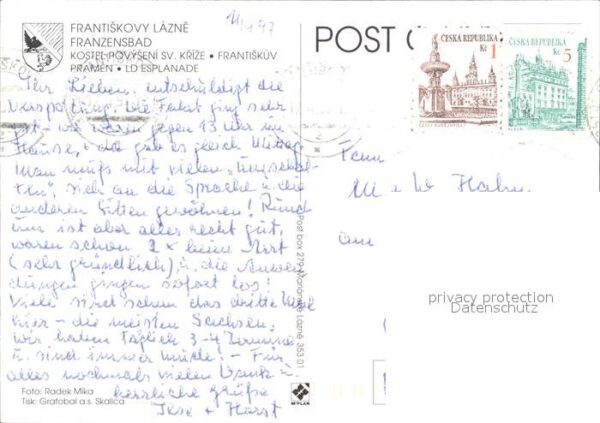 FRANTIŠKOVY LÁZNĚ
FRANZENSBAD
KOSTEL POVÝŠENÍ SV. KŘÍŽE • FRANTIŠKŮV
PRAMEN • LD ESPLANADE
Ihr Lieben, entschuldigt die
Verspätung. Die Fahrt ging sehr
gut - wir waren gegen 13 Uhr im
Hause, + da gab es gleich Mittag.
Man muß mit vielen
sich an die Sprache u. die
anderen Sitten gewöhnen! Rund
um ist aber alles recht gut,
waren schon 2 x beim Arzt
(sehr gründlich), u. die Anwen
dungen gingen sofort los!
Viele sind schon das dritte Mal
hier - die meisten Sachsen,
wir haben täglich 3-4 Termine
u. sind immer müde! - Für
alles nochmals vielen Dank -
herzliche Grüße
Ilse + Horst
Foto: Radek Mika
Tisk: Grafobal a.s. Skalica
Post box 279 Mariánské Lázně 353 01
POST
ČESKÁ REPUBLIKA
Kč 1
ČESKÁ REPUBLIKA
Kč 5
PLZEŇ
Fam
M u W Hahn
am
privacy protection
Datenschutz